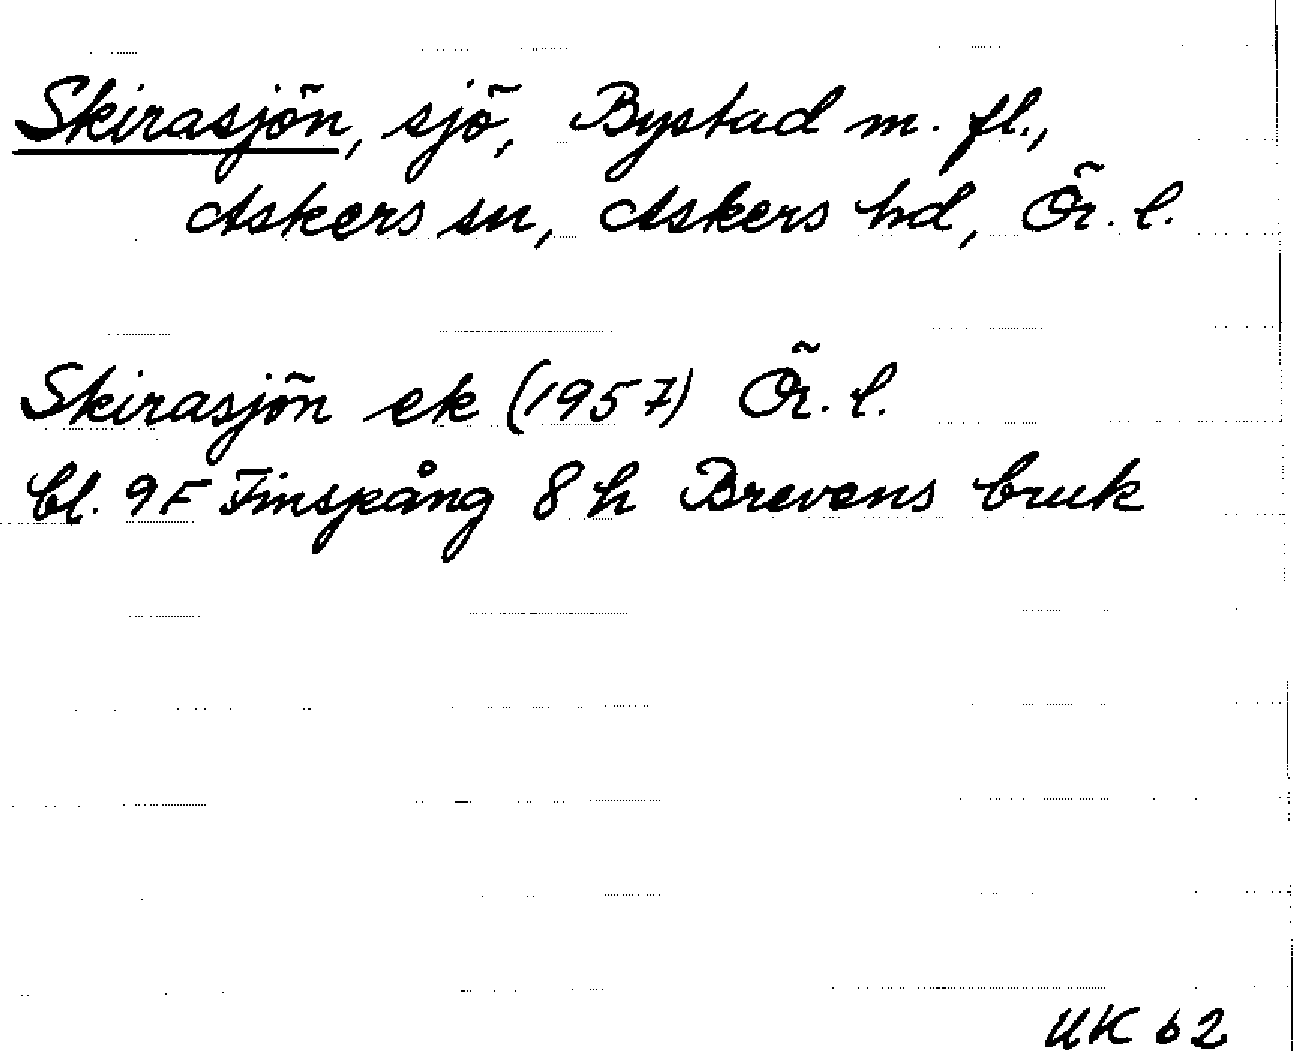 Skirasjön, sjö, Bystad m. fl.,
Askers sn, Askers hd, Ör. l.
Skirasjön ek (1957) Ör. l.
bl. 9F Finspång 8 h Brevens bruk
UK 62